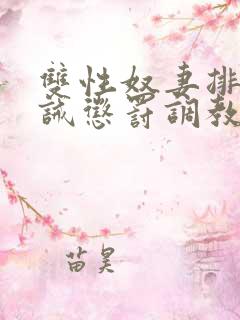 雙性奴妻排
誡懲罰調教
苗昊